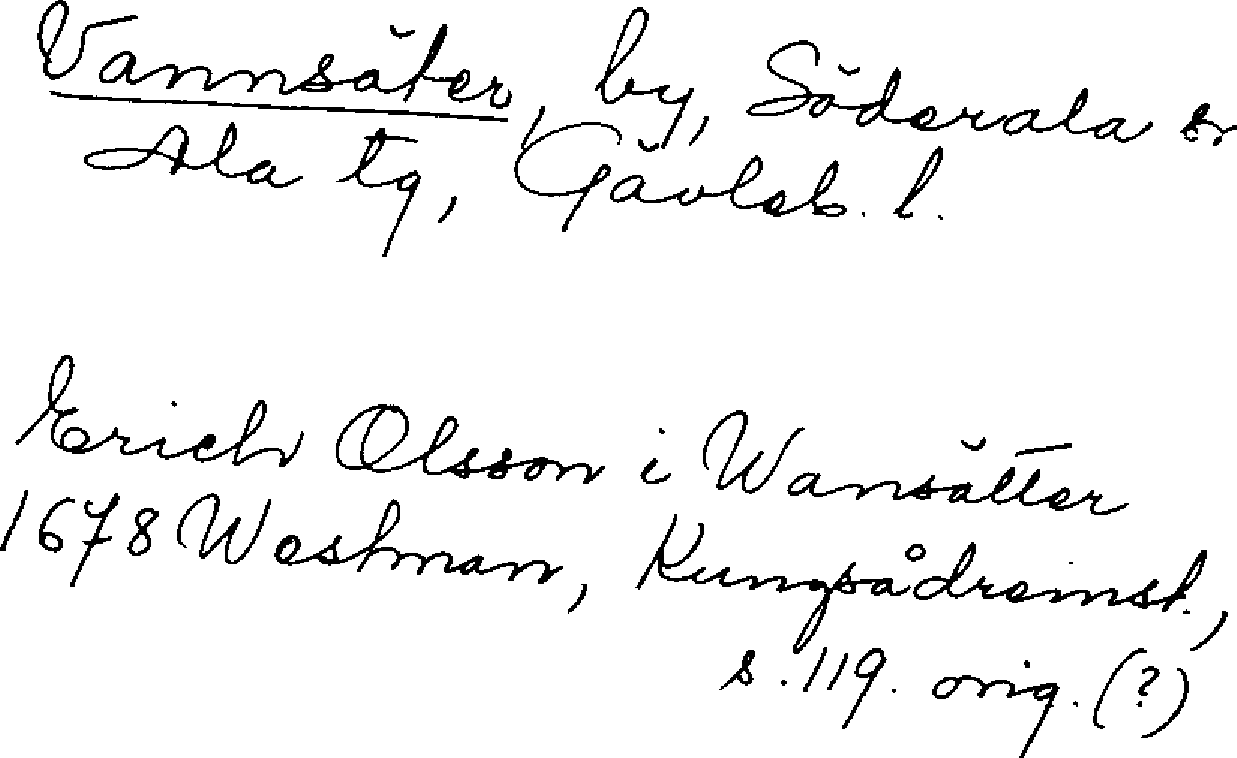 Vannsäter, by, Söderala sn
Ala tg, Gävleb. l.
Erich Olsson i Wansätter
1678 Westman, Kungsådreinst.,
s. 119. orig. (?)